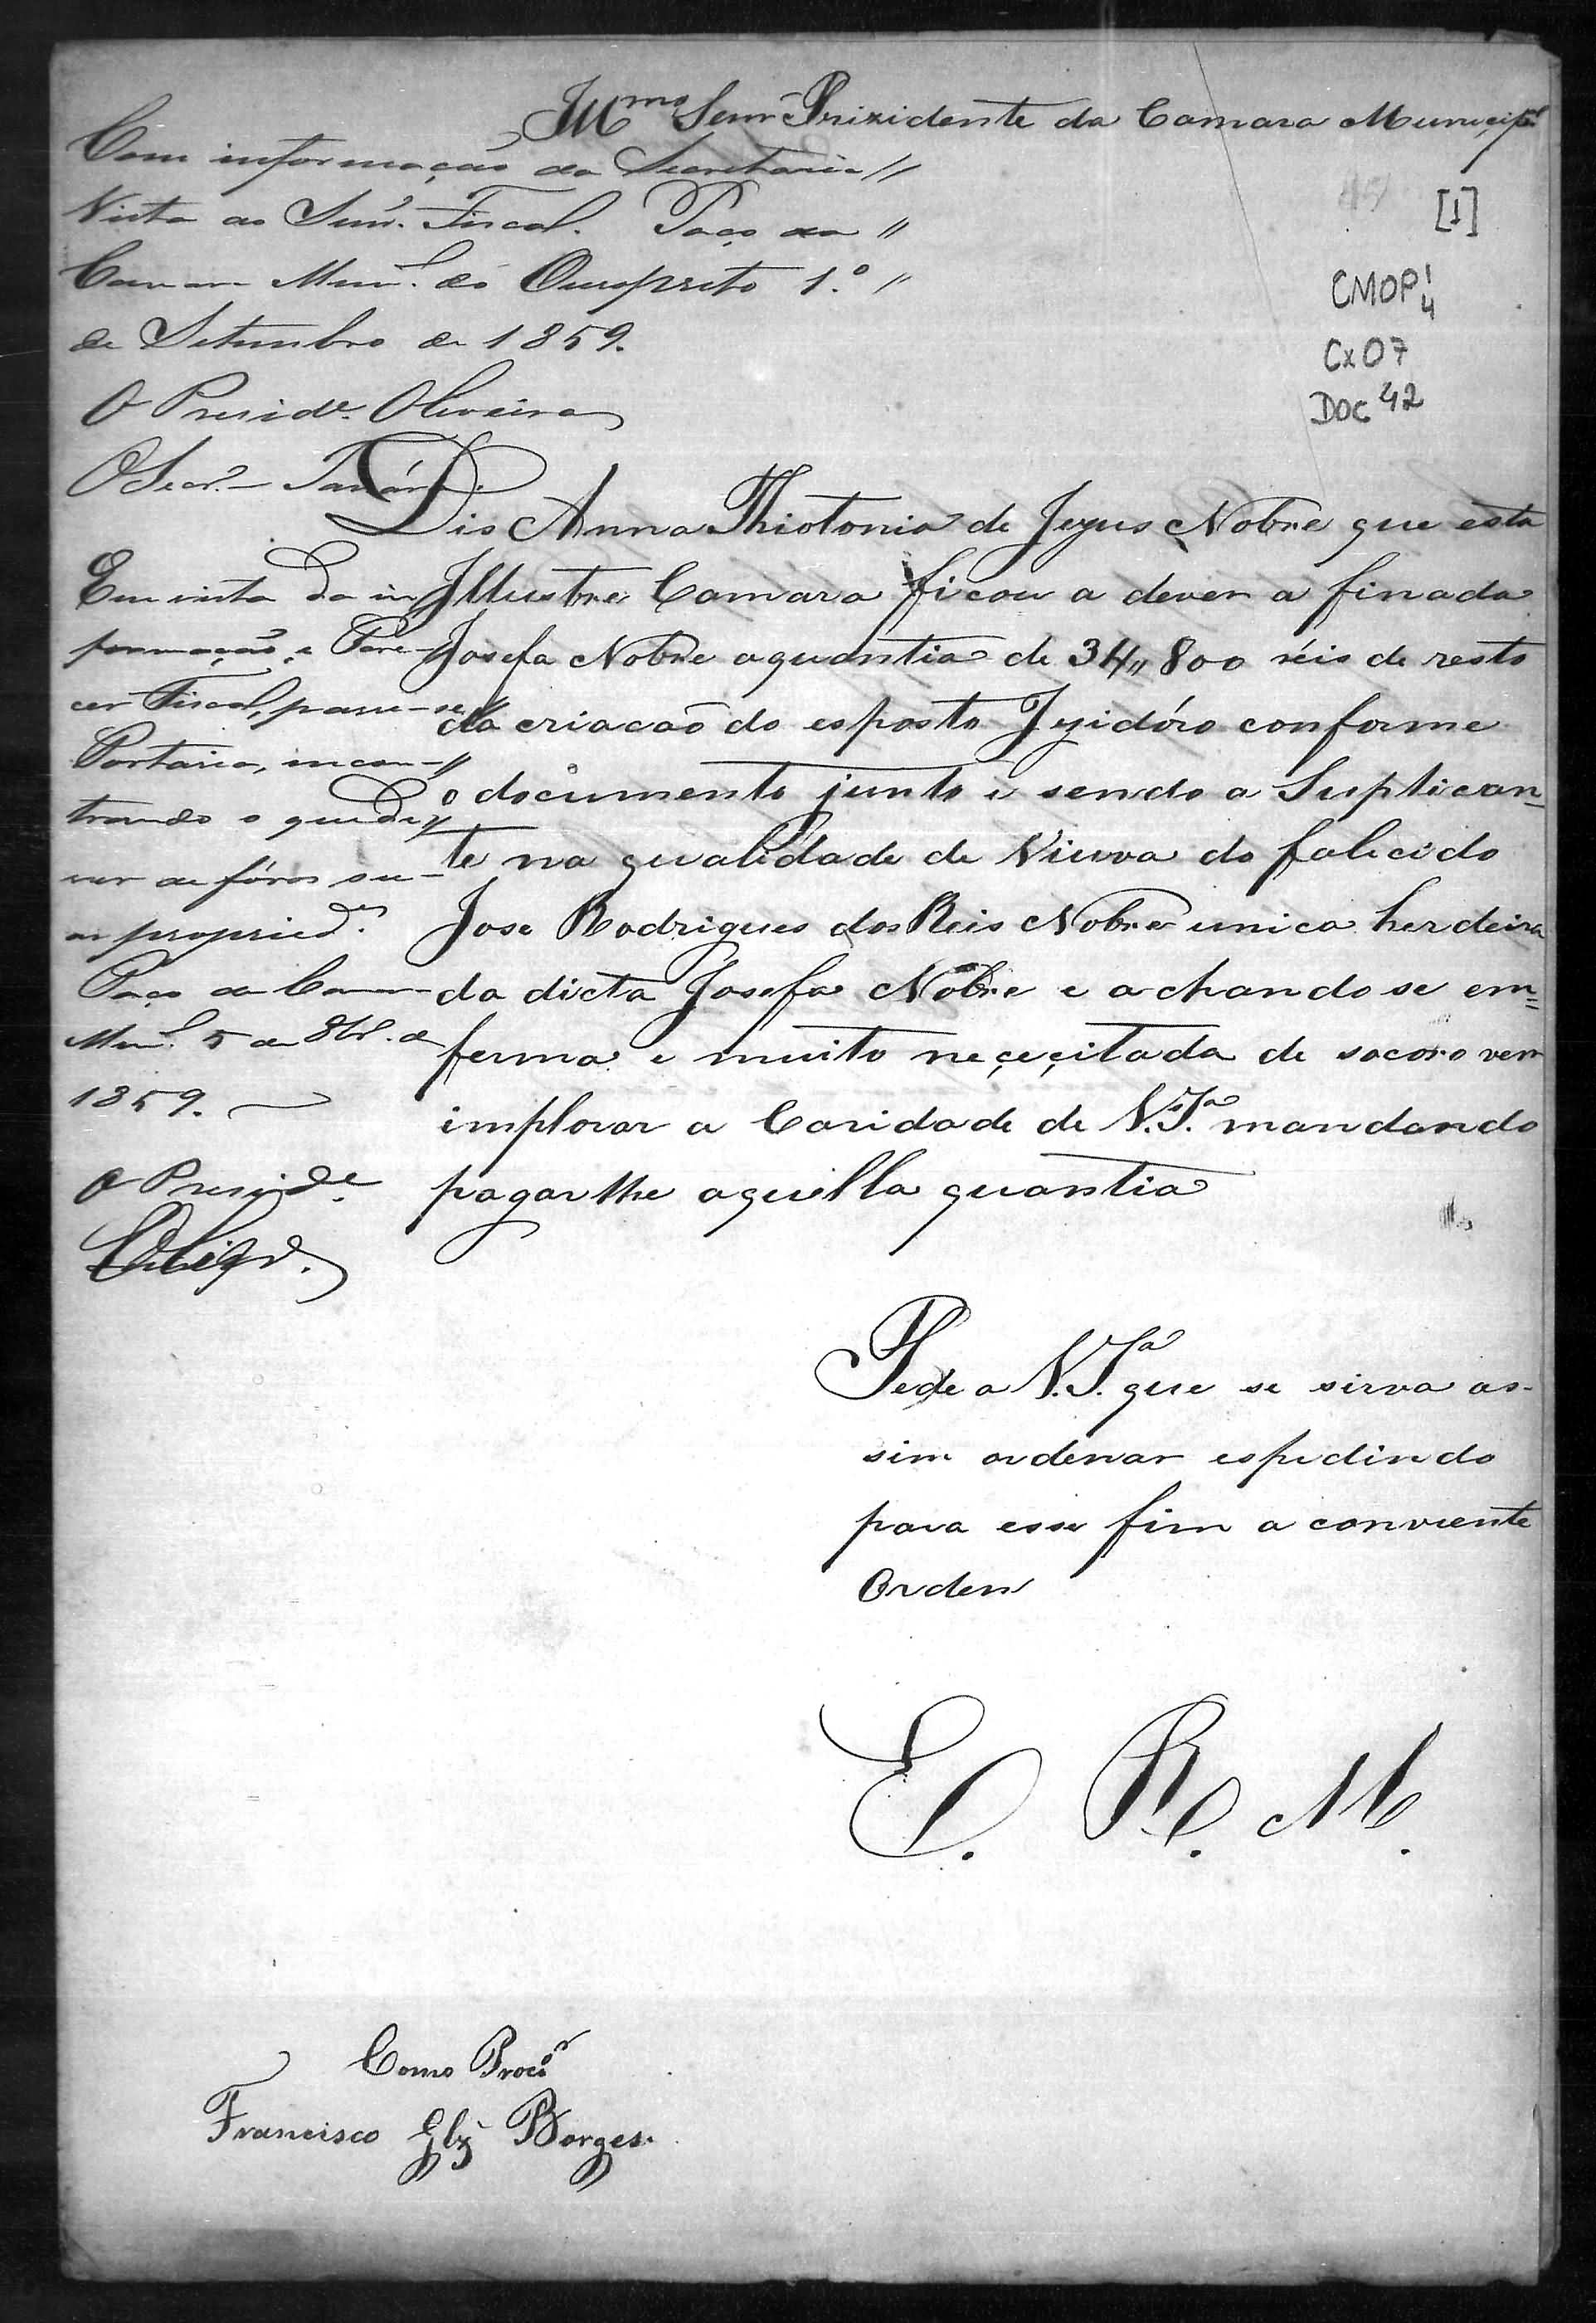 Illmo Senr Prizidente da Camara Municipal
Com informação da Secretaria //
Vista ao Senr. Fiscal. Paço da //
Camara Munl. do Ouropreto 1.º //
de Setembro de 1859.
O Preside. Oliveira
O Secr.
[1]
CMOP 1/4
Cx 07
Doc 42
Dis Anna Thiotonia de Jezus Nobre que esta
Illustre Camara ficou a dever a finada
Josefa Nobre aquantia de 34,,800 réis de resto
da criacaõ do esposto Izidóro conforme
o documento junto e sendo a Suplican=
te na qualidade de Viuva do falecido
Jose Rodrigues dos Reis Nobre unica herdeira
da dicta Josefa Nobre e achando se em=
ferma e muito neçeçitada de socoro vem
implorar a Caridade de V.Sa. mandando
pagar lhe aquella quantia
Em vista da in
formação, e Pare-
cer Fiscal, passe-se //
Portaria, incon-//
trando o que de //
ver de fóros su-
as propried.es
Paço da Camara
Munl. 5 de 8br. de
1859.
O Preside.
Pede a V.Sa. que se sirva as-
sim ordenar espedindo
para esse fim a conviente
Orden
E. R. M.
Como Procor
Francisco Glz Borges.